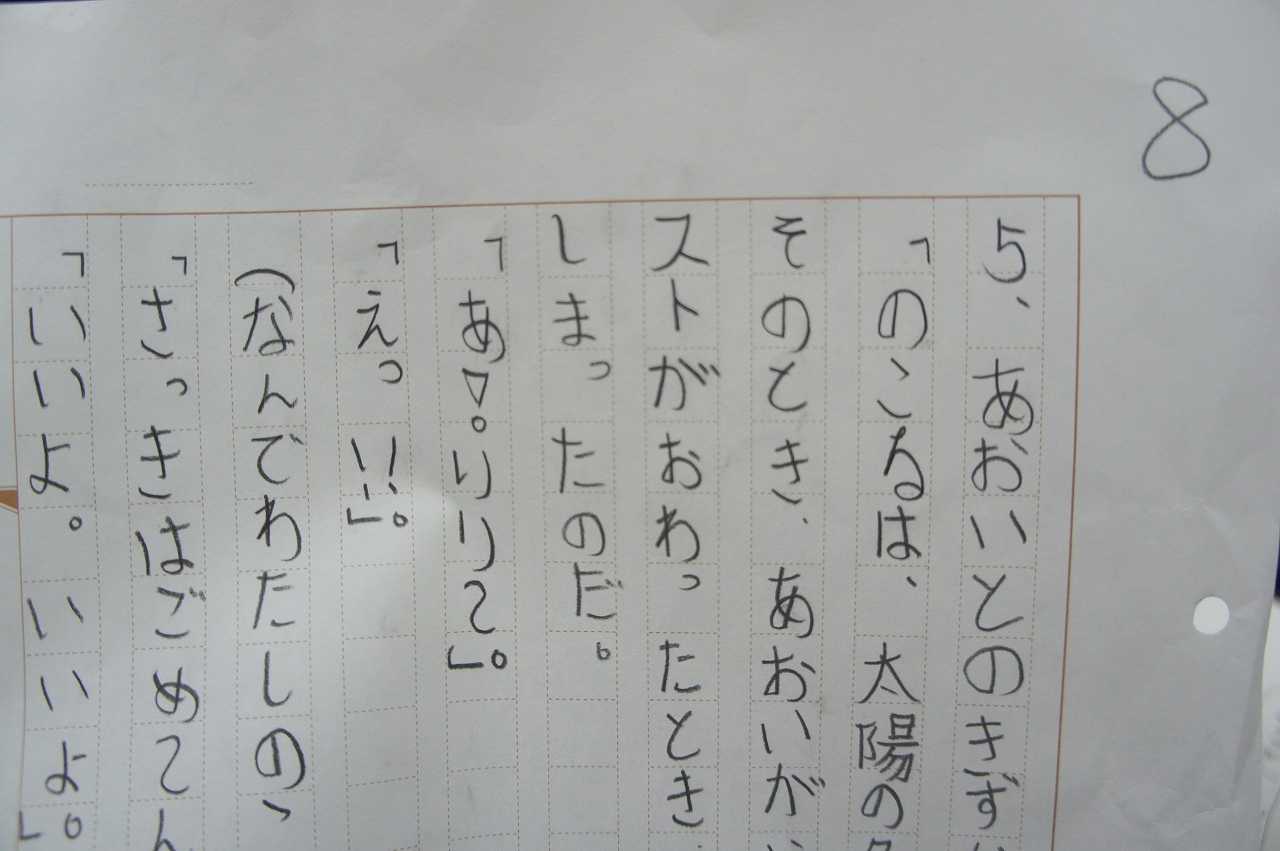 8
5、あおいとのきず
「のこるは、太陽の
そのとき、あおいが
ストがおわったとき、
しまったのだ。
「あ▽。りり〜」。
「えっ!!」。
(なんでわたしの、
「さっきはごめ〜ん
「いいよ。いいよ。」